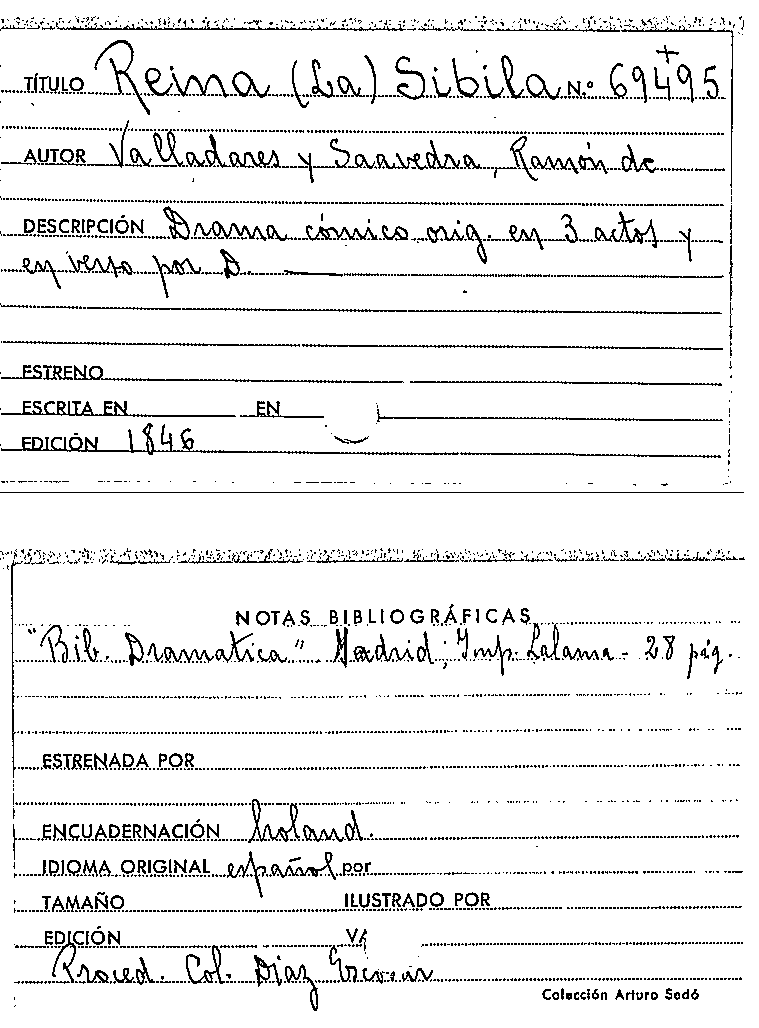 TÍTULO Reina (La) Sibila N.º 69495
AUTOR Valladares y Saavedra, Ramón de
DESCRIPCIÓN Drama cómico orig. en 3 actos y
en verso por D.
ESTRENO
ESCRITA EN EN
EDICIÓN 1846
NOTAS BIBLIOGRÁFICAS
"Bib. Dramatica" Madrid, Imp. Lalama - 28 pág.
ESTRENADA POR
ENCUADERNACIÓN holand.
IDIOMA ORIGINAL español por
TAMAÑO ILUSTRADO POR
EDICIÓN
Proced. Col. Diaz Escovar
Colección Arturo Sedó